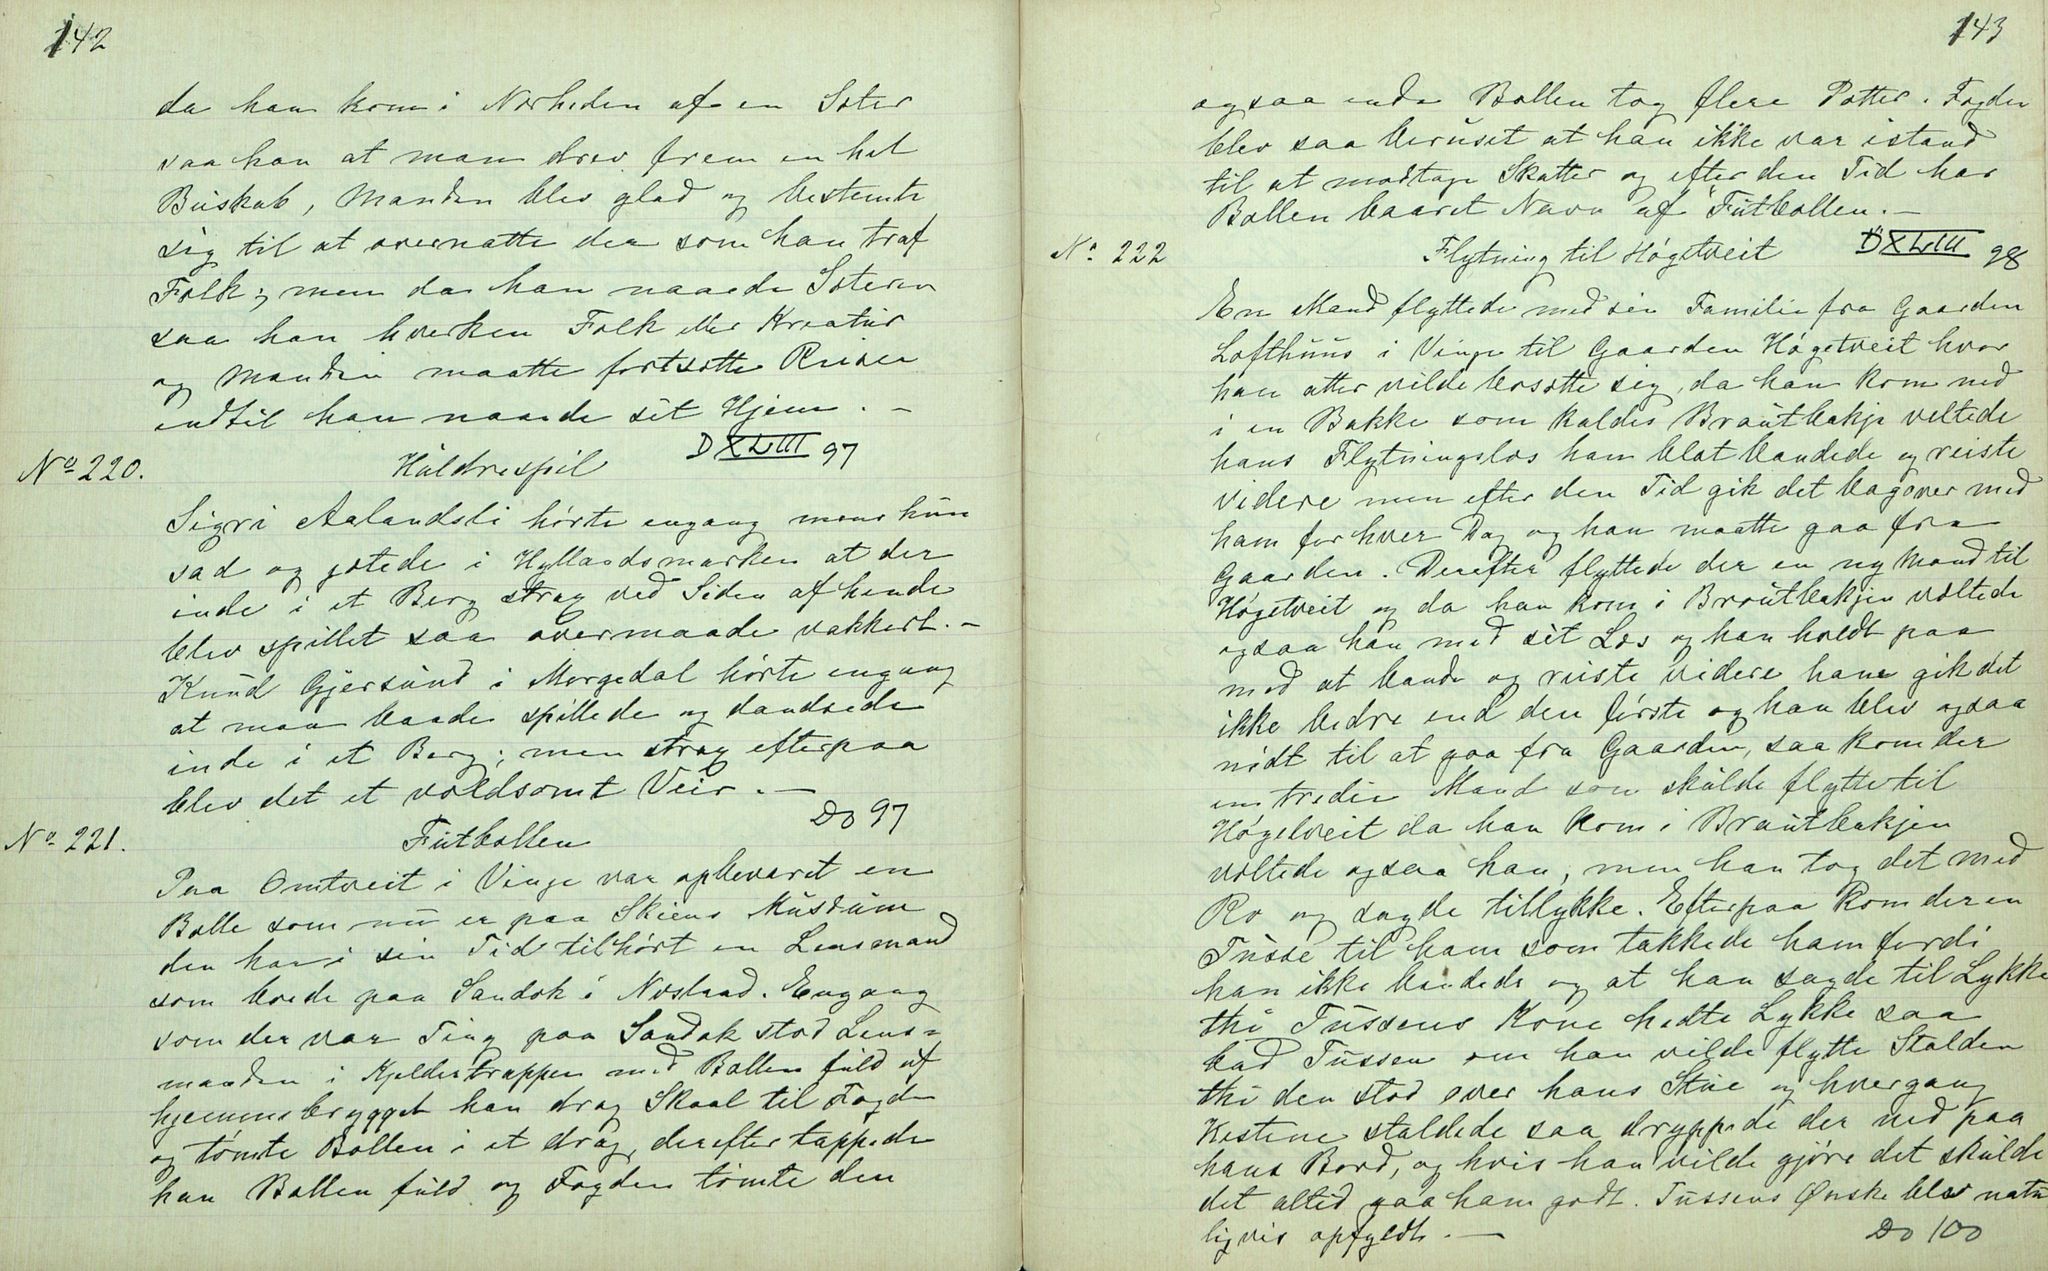 142
da han kom i Nærheden af en Sæter
saa han at man drev frem en hel
Buskab, Manden blev glad og bestemte
sig til at overnatte der som han traf
Folk; men da han naaede Sæteren
saa han hverken Folk eller Kreatur
og Manden maatte fortsætte Reisen
indtil han naaede sit Hjem. –
DXLIII 97
No 220. Huldrespil
Sigri Aalandsli hørte engang mens hun
sad og jætede i Hyllandsmarken at der
inde i et Berg strax ved Siden af hende
blev spillet saa overmaade vakkert. –
Knud Gjersund i Morgedal hørte engang
at man baade spillede og dandsede
inde i et Berg; men strax efterpaa
blev det et voldsomt Veir. –
Do 97
No 221. Futbollen
Paa Omtveit i Vinje var opbevaret en
Bolle som nu er paa Skiens Musæum
den har i sin Tid tilhørt en Lensmand
som boede paa Sandok i Nesland. Engang
som der var Ting paa Sandok stod Lens=
manden i Kjeldertrappen med Bollen fuld af
hjemmebrygget han drog Skaal til Fogden
og tømte Bollen i et drag, derefter tappede
han Bollen fuld og Fogden tømte den
143
ogsaa endda Bollen tog flere Potter. Fogden
blev saa beruset at han ikke var istand
til at modtage Skatter og efter den Tid har
Bollen baaret Navn af "Futbollen. –
DXLIII 98
No 222 Flytning til Høgetveit
En Mand flyttede med sin Familie fra Gaarden
Lofthuus i Vinje til Gaarden Høgetveit hvor
han atter vilde bosætte sig, da han kom ned
i en Bakke som kaldes Brautbakje veltede
hans Flytningslæs han blot bandede og reiste
videre men efter den Tid gik det bagover med
ham for hver Dag og han maatte gaa fra
Gaarden. Derefter flyttede der en ny Mand til
Høgetveit og da han kom i Brautbakjen væltede
ogsaa han med sit Læs og han holdt paa
med at bande og reiste videre ham gik det
ikke bedre end den første og han blev ogsaa
nødt til at gaa fra Gaarden, saa kom der
en tredie Mand som skulde flytte til
Høgetveit da han kom i Brautbakjen
væltede ogsaa han, men han tog det med
Ro og sagde tillykke. Efterpaa kom der en
Tusse til ham som takkede ham fordi
han ikke bandede og at han sagde til Lykke
thi Tussens Kone hedte Lykke saa
bad Tussen om han vilde flytte Stalden
thi den stod over hans Stue og hvergang
Hestene staldede saa dryppede der ned paa
hans Bord, og hvis han vilde gjøre det skulde
det altid gaa ham godt. Tussens Ønske blev natu
ligvis opfyldt. –
Do 100